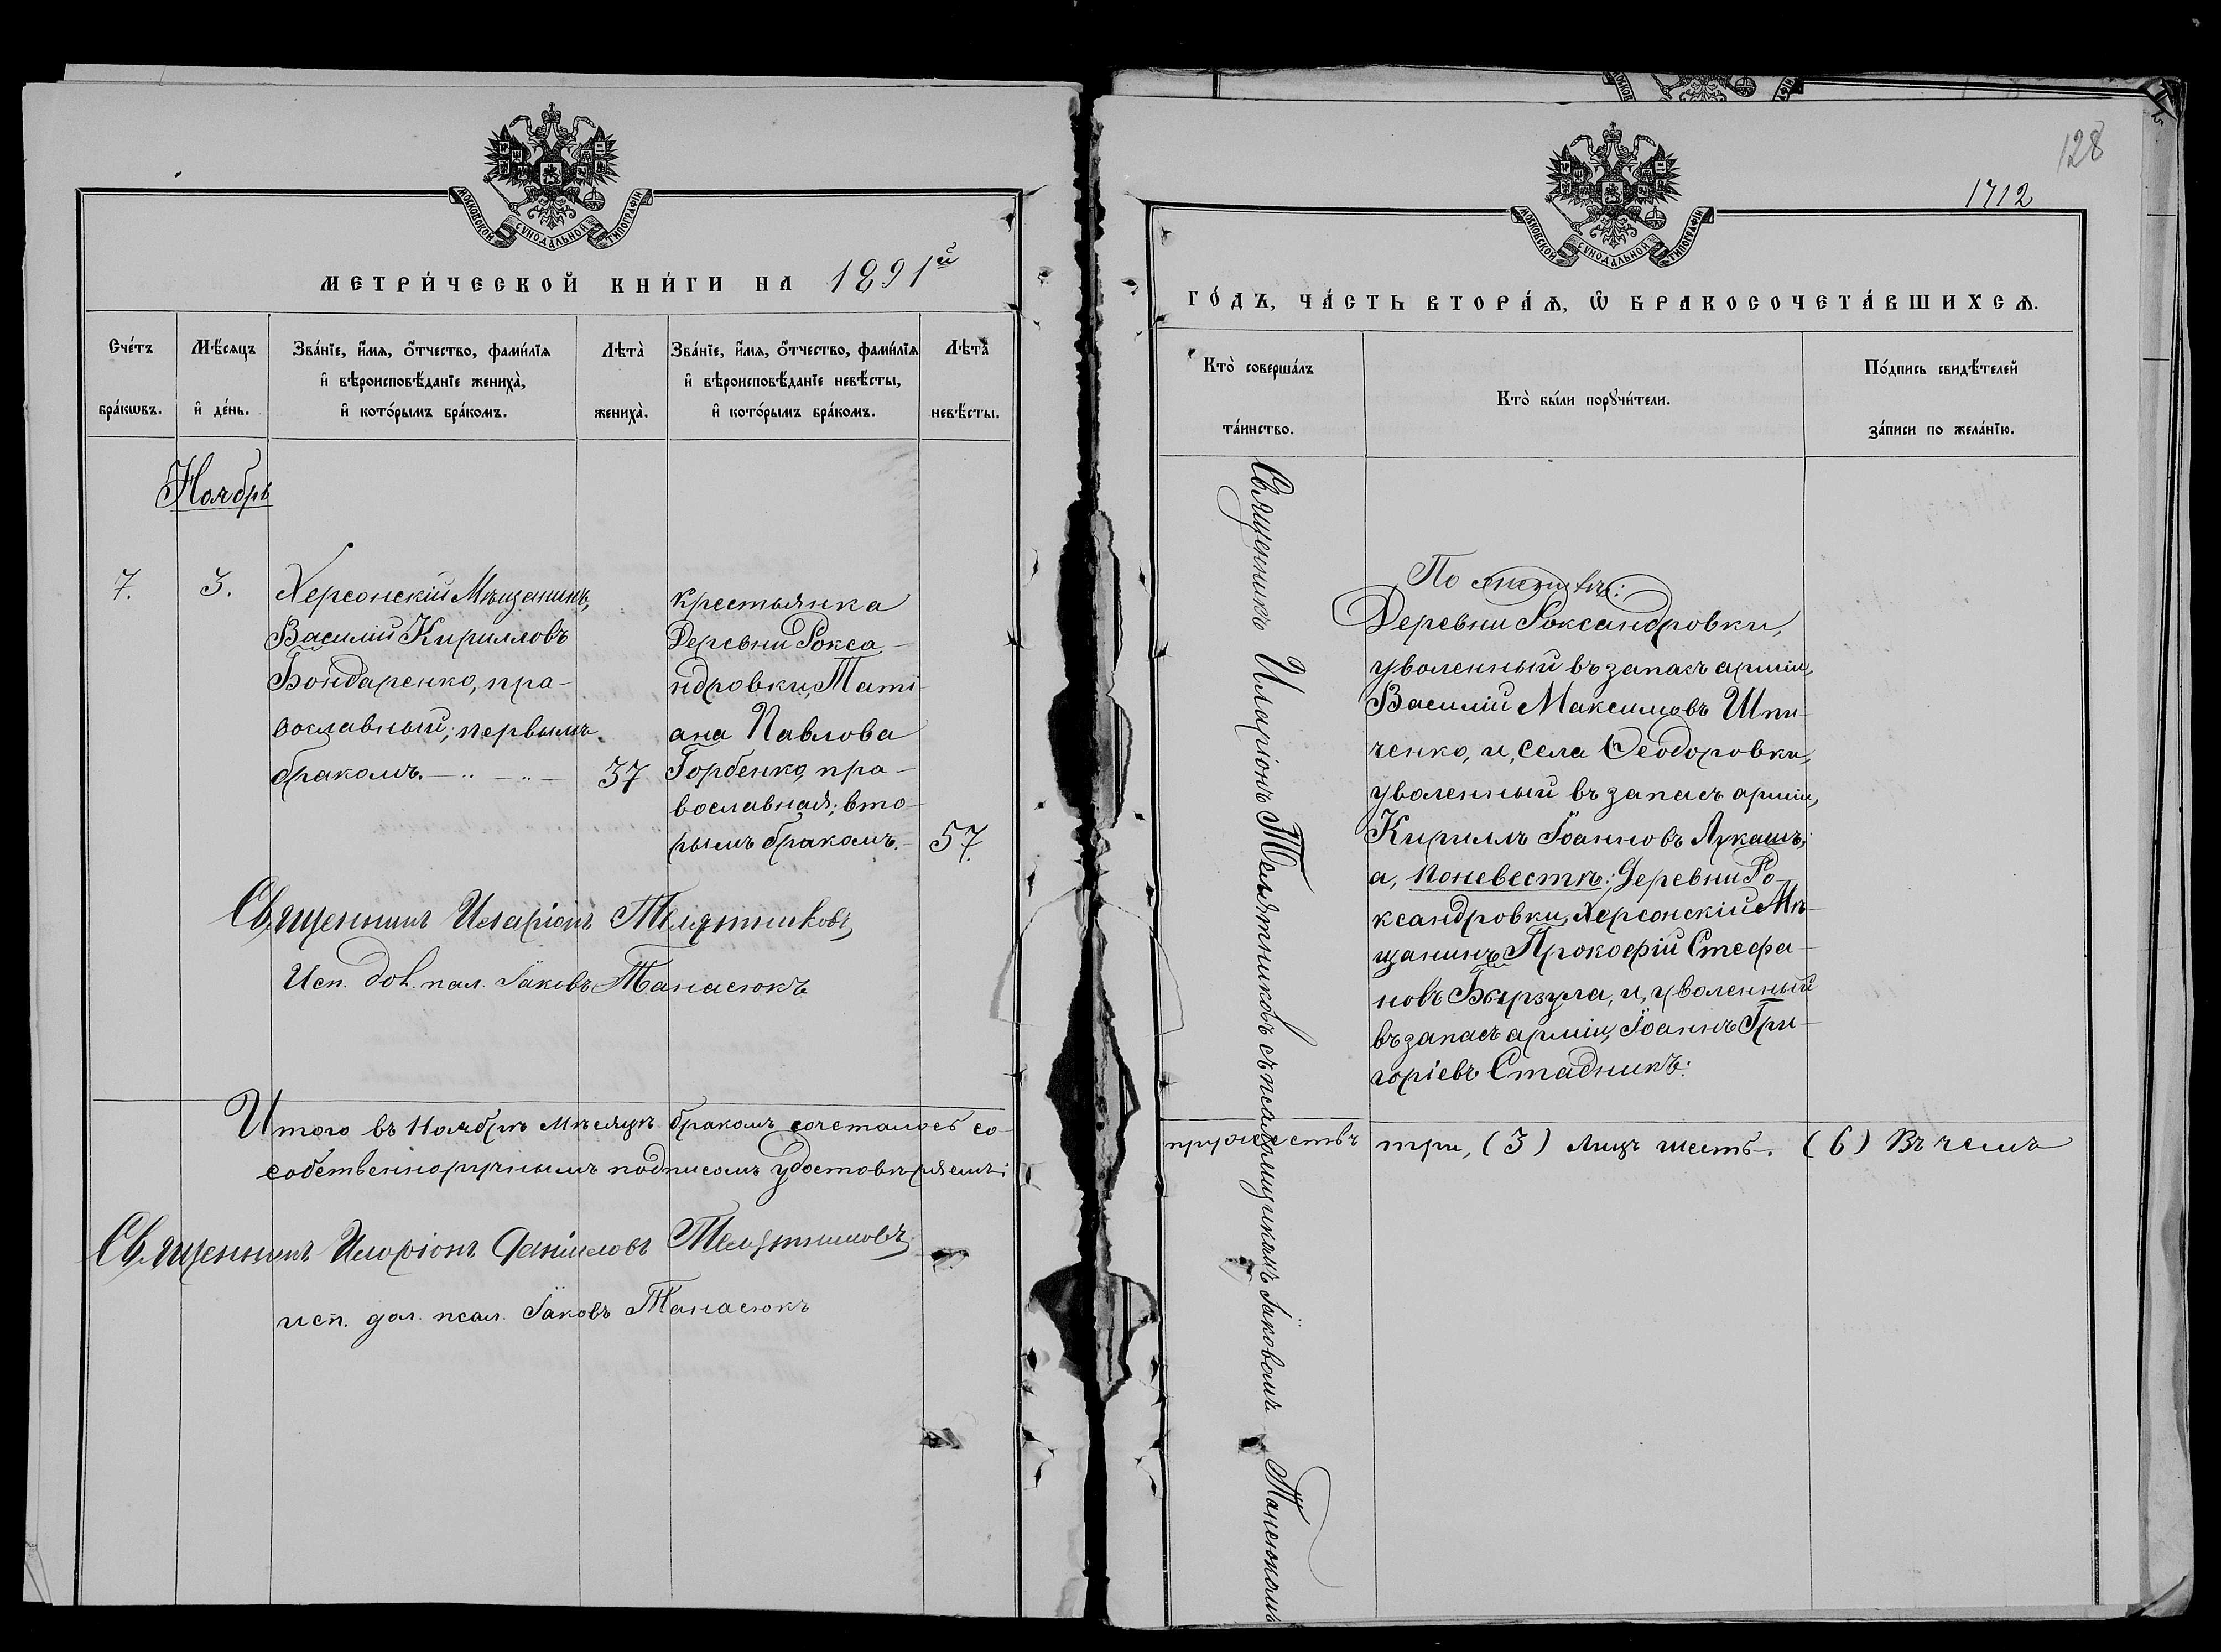 МОСКОВСКОЙ СѴНОДАЛЬНОЙ ТИПОГРАФІИ
МЕТРИ́ЧЕСКОЙ КНИ́ГИ НА 1891й
Сче́тъ бра́кѡвъ.
Мѣ́сяцъ и҆ де́нь.
Зва́нїе, и҆́мѧ, ѻ҆́тчество, фами́лїѧ
и҆ вѣроисповѣ́данїе жениха̀,
и҆ кото́рымъ бра́комъ.
Лѣта̀ жениха̀.
Зва́нїе, и҆́мѧ, ѻ҆́тчество, фами́лїѧ
и҆ вѣроисповѣ́данїе невѣ́сты,
и҆ кото́рымъ бра́комъ.
Лѣта̀ невѣ́сты.
Ноябрь
7.
3.
Херсонскій Мѣщанинъ,
Василій Кирилловъ
Бондаренко, пра-
вославный; первымъ
бракомъ.
37
крестьянка
Деревни Рокса-
ндровки, Таті-
ана Павлова
Горбенко, пра-
вославная; вто-
рымъ бракомъ.-
57.
Священникъ Иларіонъ Телятниковъ
Исп. дол. псал. Іаковъ Танасюкъ
Итого въ Ноябрѣ мѣсяцѣ бракомъ сочеталось со-
собственноручнымъ подписомъ удостовѣряемъ:
Священникъ Иларіонъ Даніиловъ Телятниковъ
исп. дол. псал. Іаковъ Танасюкъ
128
1712
МОСКОВСКОЙ СѴНОДАЛЬНОЙ ТИПОГРАФІИ
ГО́ДЪ, ЧА́СТЬ ВТОРА́Ѧ, Ѽ БРАКОСОЧЕТА́ВШИХСѦ.
Кто̀ соверша́лъ та́инство.
Кто̀ бы́ли порꙋчи́тели.
По́дпись свидѣ́телей
за́писи по жела́нїю.
Священникъ Иларіонъ Телятниковъ съ псаломщикомъ Іаковомъ Танасюкомъ
По женихѣ:
Деревни Роксандровки,
уволенный въ запасъ арміи,
Василій Максимовъ Шпи-
ченко, и, села Ѳеодоровки,
уволенный въ запасъ арміи,
Кириллъ Іоанновъ Лукашъ;
а, поневестѣ: Деревни Ро-
ксандровки, Херсонскій Мѣ-
щанинъ Прокофій Стефа-
новъ Бирзула, и, уволенный
въ запасъ арміи, Іоаннъ Гри-
горіевъ Стадникъ:
пружествъ три, (3) лицъ шесть. (6) Въ чемъ